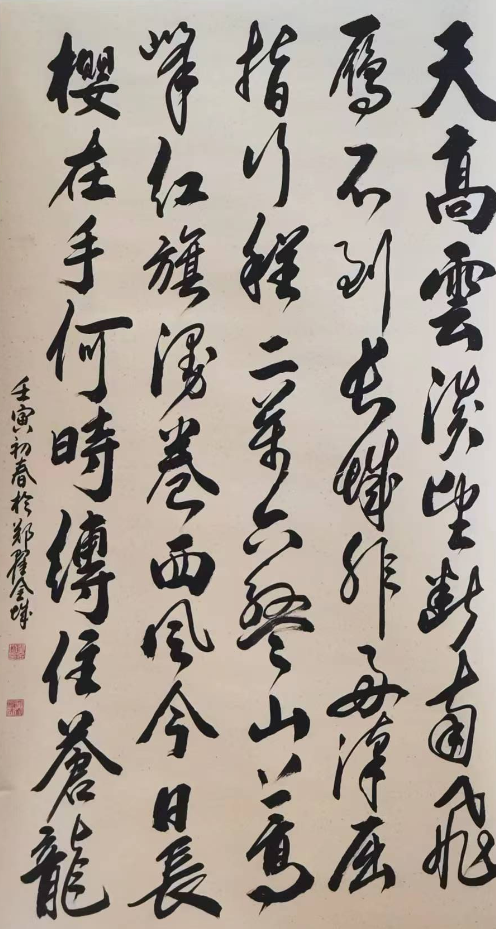 天高雲淡望断南飛
雁不到長城非好漢屈
指行程二萬六盤山上高
峰紅旗漫卷西風今日長
櫻在手何時縛住蒼龍
壬寅初春於郑翟金城